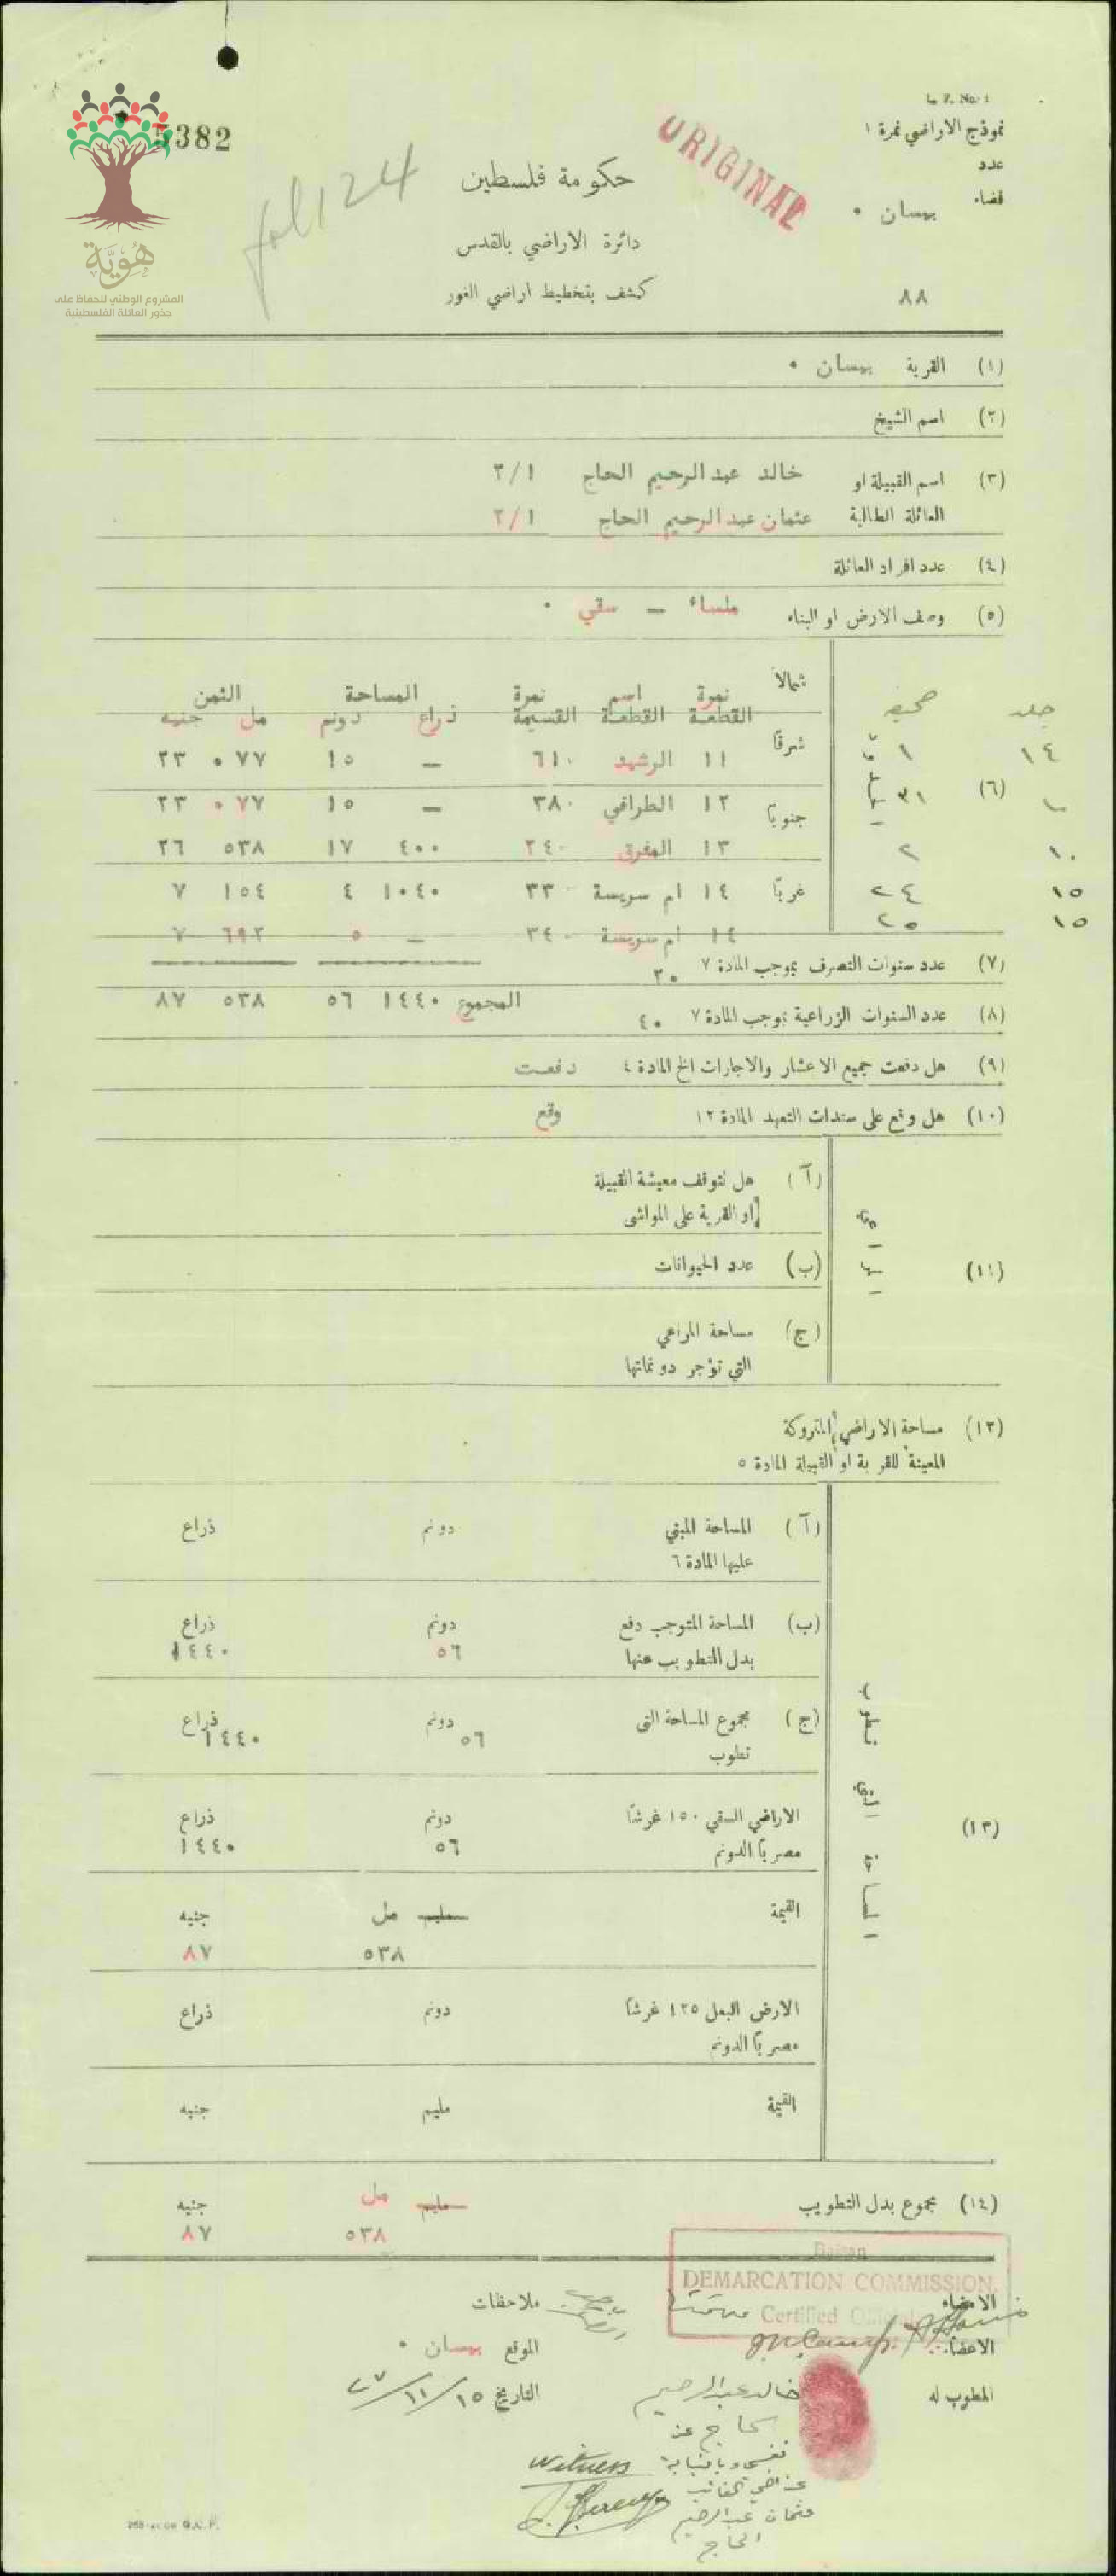 L. P. No. 1
نموذج الاراضي نمرة ١
عدد
قضاء بيسان •
٨٨
5382
fol 124
ORIGINAL
هُوِيَّة
المشروع الوطني للحفاظ على
جذور العائلة الفلسطينية
حكومة فلسطين
دائرة الاراضي بالقدس
كشف بتخطيط اراضي الغور
(١) القرية بيسان •
(٢) اسم الشيخ
(٣) اسم القبيلة او خالد عبد الرحيم الحاج ٢/١
العائلة الطالبة عثمان عبد الرحيم الحاج ٢/١
(٤) عدد افراد العائلة
(٥) وصف الارض او البناء ملساء – سقي •
جلد صحيفة شمالاً نمرة اسم نمرة المساحة الثمن
القطعة القطعة القسيمة ذراع دونم مل جنيه
١٤ ١ شرقاً ١١ الرشيد ٦١٠ – ١٥ ٠٧٧ ٢٣
(٦) ٣١ ١٢ الطرافي ٣٨٠ – ١٥ ٠٧٧ ٢٣
جنوباً
١٠ ٢ ١٣ المفرق ٢٤٠ ٤٠٠ ١٧ ٥٣٨ ٢٦
١٥ ٢٤ غرباً ١٤ ام سريسة ٣٣٠ ١٠٤٠ ٤ ١٥٤ ٧
١٥ ٢٥ ١٤ ام سريسة ٣٤٠ – ٥ ٦٩٢ ٧
(٧) عدد سنوات التصرف بموجب المادة ٧ ٣٠
المجموع ١٤٤٠ ٥٦ ٥٣٨ ٨٧
(٨) عدد السنوات الزراعية بموجب المادة ٧ ٤٠
(٩) هل دفعت جميع الاعشار والاجارات الخ المادة ٤ دفعت
(١٠) هل وقع على سندات التعهد المادة ١٢ وقع
(١١)
(آ) هل تتوقف معيشة القبيلة
او القرية على المواشي
(ب) عدد الحيوانات
(ج) مساحة المراعي
التي تؤجر دونماتها
(١٢) مساحة الاراضي المتروكة
المعينة للقرية او القبيلة المادة ٥
(آ) المساحة المبني دونم ذراع
عليها المادة ٦
(ب) المساحة المتوجب دفع دونم ذراع
بدل التطويب عنها ٥٦ ١٤٤٠
(ج) مجموع المساحة التي دونم ذراع
تطوب ٥٦ ١٤٤٠
(١٣)
الاراضي السقي ١٥٠ غرشاً دونم ذراع
مصرياً الدونم ٥٦ ١٤٤٠
القيمة مليم مل جنيه
٥٣٨ ٨٧
الارض البعل ١٢٥ غرشاً دونم ذراع
مصرياً الدونم
القيمة مليم جنيه
(١٤) مجموع بدل التطويب مليم مل جنيه
٥٣٨ ٨٧
Baisan
DEMARCATION COMMISSION.
Certified Official
الامضاء
ملاحظات
الاعضاء
الموقع بيسان •
المطوب له خالد عبد الرحيم
التاريخ ١٥/١١/٢٧
الحاج عن
نفسي وبالنيابة
عن اخي الغائب
عثمان عبد الرحيم
الحاج
Witness
G.C.P.